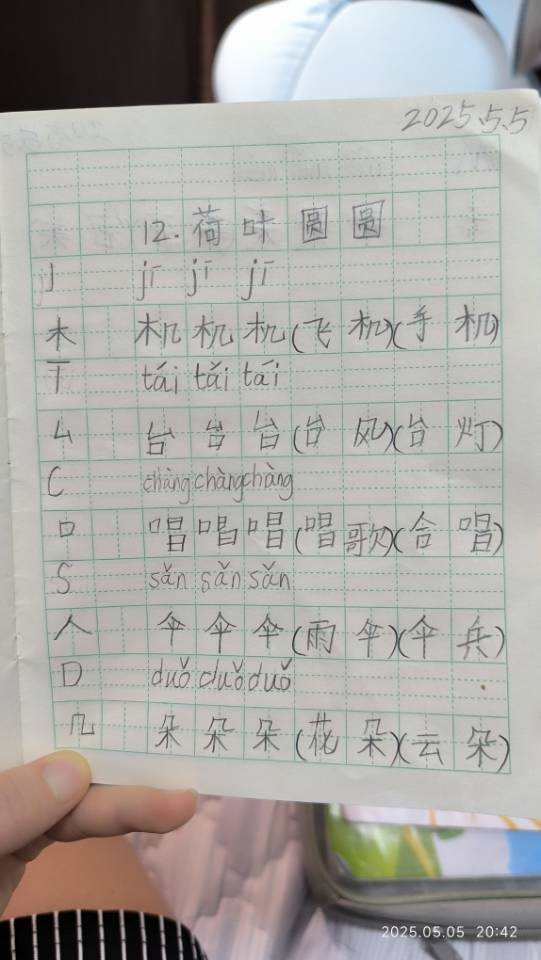 2025.5.5
12. 荷叶圆圆
J jī jī jī
木 机 机 机 (飞 机) (手 机)
T tái tǎi tāi
厶 台 台 台 (台 风) (台 灯)
C chàng chàng chàng
口 唱 唱 唱 (唱 歌) (合 唱)
S sǎn sǎn sǎn
人 伞 伞 伞 (雨 伞) (伞 兵)
D duǒ duǒ duǒ
几 朵 朵 朵 (花 朵) (云 朵)
2025.05.05 20:42